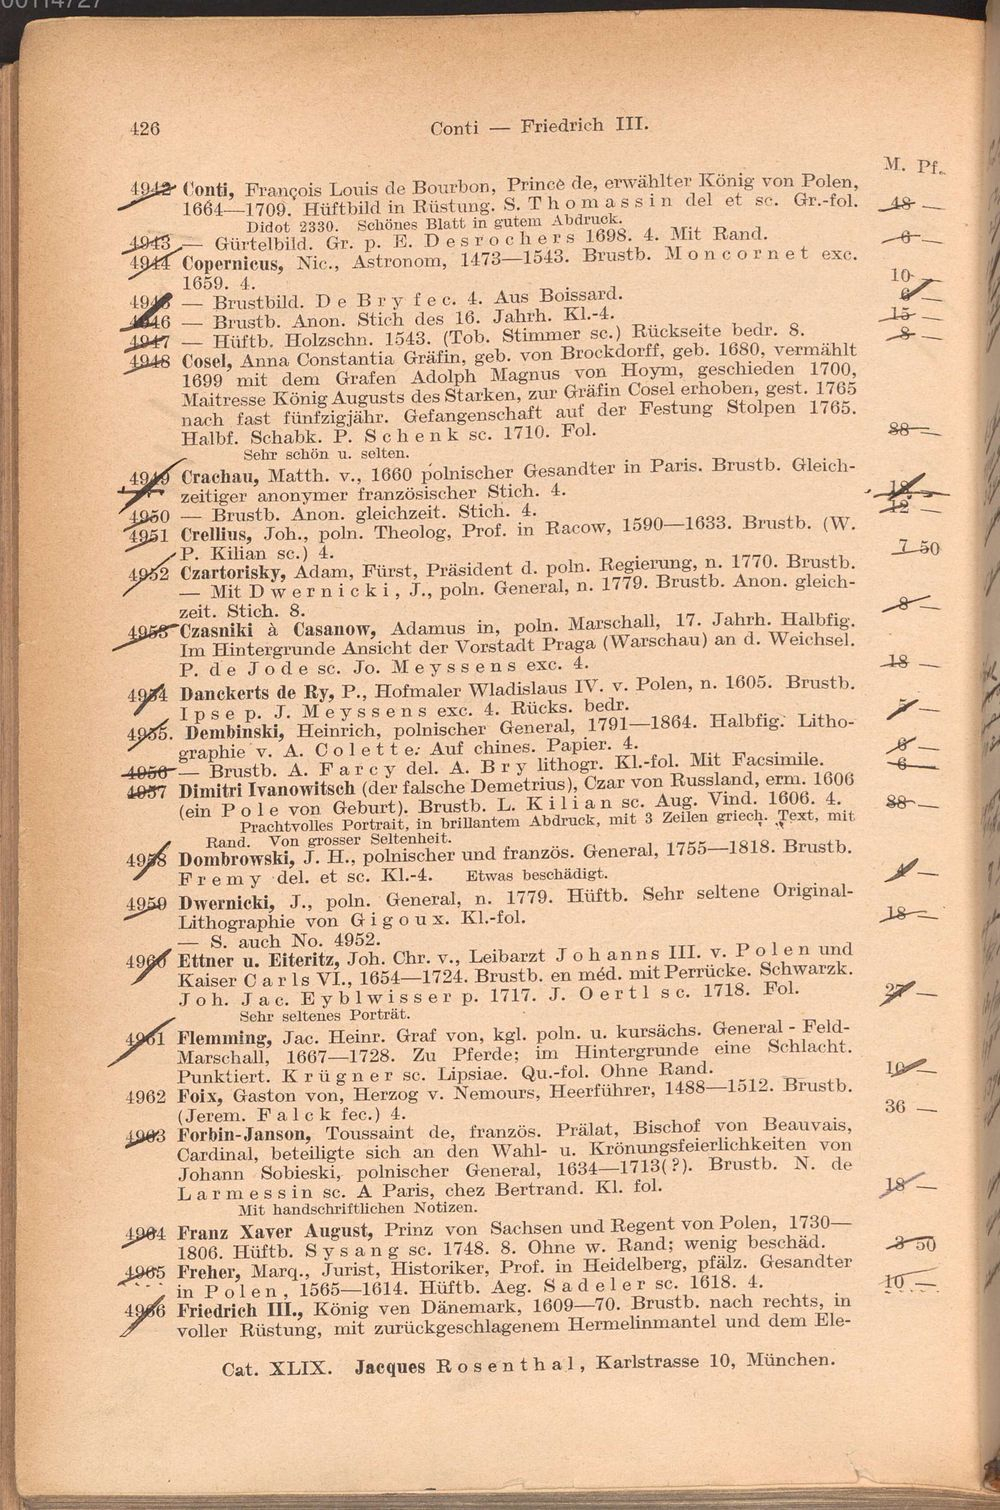 00114727
426 Conti — Friedrich III.
M. Pf.
4942 Conti, François Louis de Bourbon, Prince de, erwählter König von Polen,
1664—1709. Hüftbild in Rüstung. S. Thomassin del et sc. Gr.-fol. 48 —
Didot 2330. Schönes Blatt in gutem Abdruck.
4943 — Gürtelbild. Gr. p. E. Desrochers 1698. 4. Mit Rand. 6 —
4944 Copernicus, Nic., Astronom, 1473—1543. Brustb. Moncornet exc.
1659. 4. 10 —
4945 — Brustbild. De Bry fec. 4. Aus Boissard. 6 —
4946 — Brustb. Anon. Stich des 16. Jahrh. Kl.-4. 15 —
4947 — Hüftb. Holzschn. 1543. (Tob. Stimmer sc.) Rückseite bedr. 8. 8 —
4948 Cosel, Anna Constantia Gräfin, geb. von Brockdorff, geb. 1680, vermählt
1699 mit dem Grafen Adolph Magnus von Hoym, geschieden 1700,
Maitresse König Augusts des Starken, zur Gräfin Cosel erhoben, gest. 1765
nach fast fünfzigjähr. Gefangenschaft auf der Festung Stolpen 1765.
Halbf. Schabk. P. Schenk sc. 1710. Fol. 38 —
Sehr schön u. selten.
4949 Crachau, Matth. v., 1660 polnischer Gesandter in Paris. Brustb. Gleich-
zeitiger anonymer französischer Stich. 4. 18 —
4950 — Brustb. Anon. gleichzeit. Stich. 4. 12 —
4951 Crellius, Joh., poln. Theolog, Prof. in Racow, 1590—1633. Brustb. (W.
P. Kilian sc.) 4. 7 50
4952 Czartorisky, Adam, Fürst, Präsident d. poln. Regierung, n. 1770. Brustb.
— Mit Dwernicki, J., poln. General, n. 1779. Brustb. Anon. gleich-
zeit. Stich. 8. 8 —
4953 Czasniki à Casanow, Adamus in, poln. Marschall, 17. Jahrh. Halbfig.
Im Hintergrunde Ansicht der Vorstadt Praga (Warschau) an d. Weichsel.
P. de Jode sc. Jo. Meyssens exc. 4. 18 —
4954 Danckerts de Ry, P., Hofmaler Wladislaus IV. v. Polen, n. 1605. Brustb.
Ipse p. J. Meyssens exc. 4. Rücks. bedr. 5 —
4955. Dembinski, Heinrich, polnischer General, 1791—1864. Halbfig. Litho-
graphie v. A. Colette. Auf chines. Papier. 4. 6 —
4956 — Brustb. A. Farcy del. A. Bry lithogr. Kl.-fol. Mit Facsimile. 6 —
4957 Dimitri Ivanowitsch (der falsche Demetrius), Czar von Russland, erm. 1606
(ein Pole von Geburt). Brustb. L. Kilian sc. Aug. Vind. 1606. 4. 38 —
Prachtvolles Portrait, in brillantem Abdruck, mit 3 Zeilen griech. Text, mit
Rand. Von grosser Seltenheit.
4958 Dombrowski, J. H., polnischer und französ. General, 1755—1818. Brustb.
Fremy del. et sc. Kl.-4. Etwas beschädigt. 4 —
4959 Dwernicki, J., poln. General, n. 1779. Hüftb. Sehr seltene Original-
Lithographie von Gigoux. Kl.-fol. 18 —
— S. auch No. 4952.
4960 Ettner u. Eiteritz, Joh. Chr. v., Leibarzt Johanns III. v. Polen und
Kaiser Carls VI., 1654—1724. Brustb. en méd. mit Perrücke. Schwarzk.
Joh. Jac. Eyblwisser p. 1717. J. Oertl sc. 1718. Fol. 27 —
Sehr seltenes Porträt.
4961 Flemming, Jac. Heinr. Graf von, kgl. poln. u. kursächs. General-Feld-
Marschall, 1667—1728. Zu Pferde; im Hintergrunde eine Schlacht.
Punktiert. Krügner sc. Lipsiae. Qu.-fol. Ohne Rand. 10 —
4962 Foix, Gaston von, Herzog v. Nemours, Heerführer, 1488—1512. Brustb.
(Jerem. Falck fec.) 4. 36 —
4963 Forbin-Janson, Toussaint de, französ. Prälat, Bischof von Beauvais,
Cardinal, beteiligte sich an den Wahl- u. Krönungsfeierlichkeiten von
Johann Sobieski, polnischer General, 1634—1713(?). Brustb. N. de
Larmessin sc. A Paris, chez Bertrand. Kl. fol. 18 —
Mit handschriftlichen Notizen.
4964 Franz Xaver August, Prinz von Sachsen und Regent von Polen, 1730—
1806. Hüftb. Sysang sc. 1748. 8. Ohne w. Rand; wenig beschäd. 3 50
4965 Freher, Marq., Jurist, Historiker, Prof. in Heidelberg, pfälz. Gesandter
in Polen, 1565—1614. Hüftb. Aeg. Sadeler sc. 1618. 4. 10 —
4966 Friedrich III., König ven Dänemark, 1609—70. Brustb. nach rechts, in
voller Rüstung, mit zurückgeschlagenem Hermelinmantel und dem Ele-
Cat. XLIX. Jacques Rosenthal, Karlstrasse 10, München.